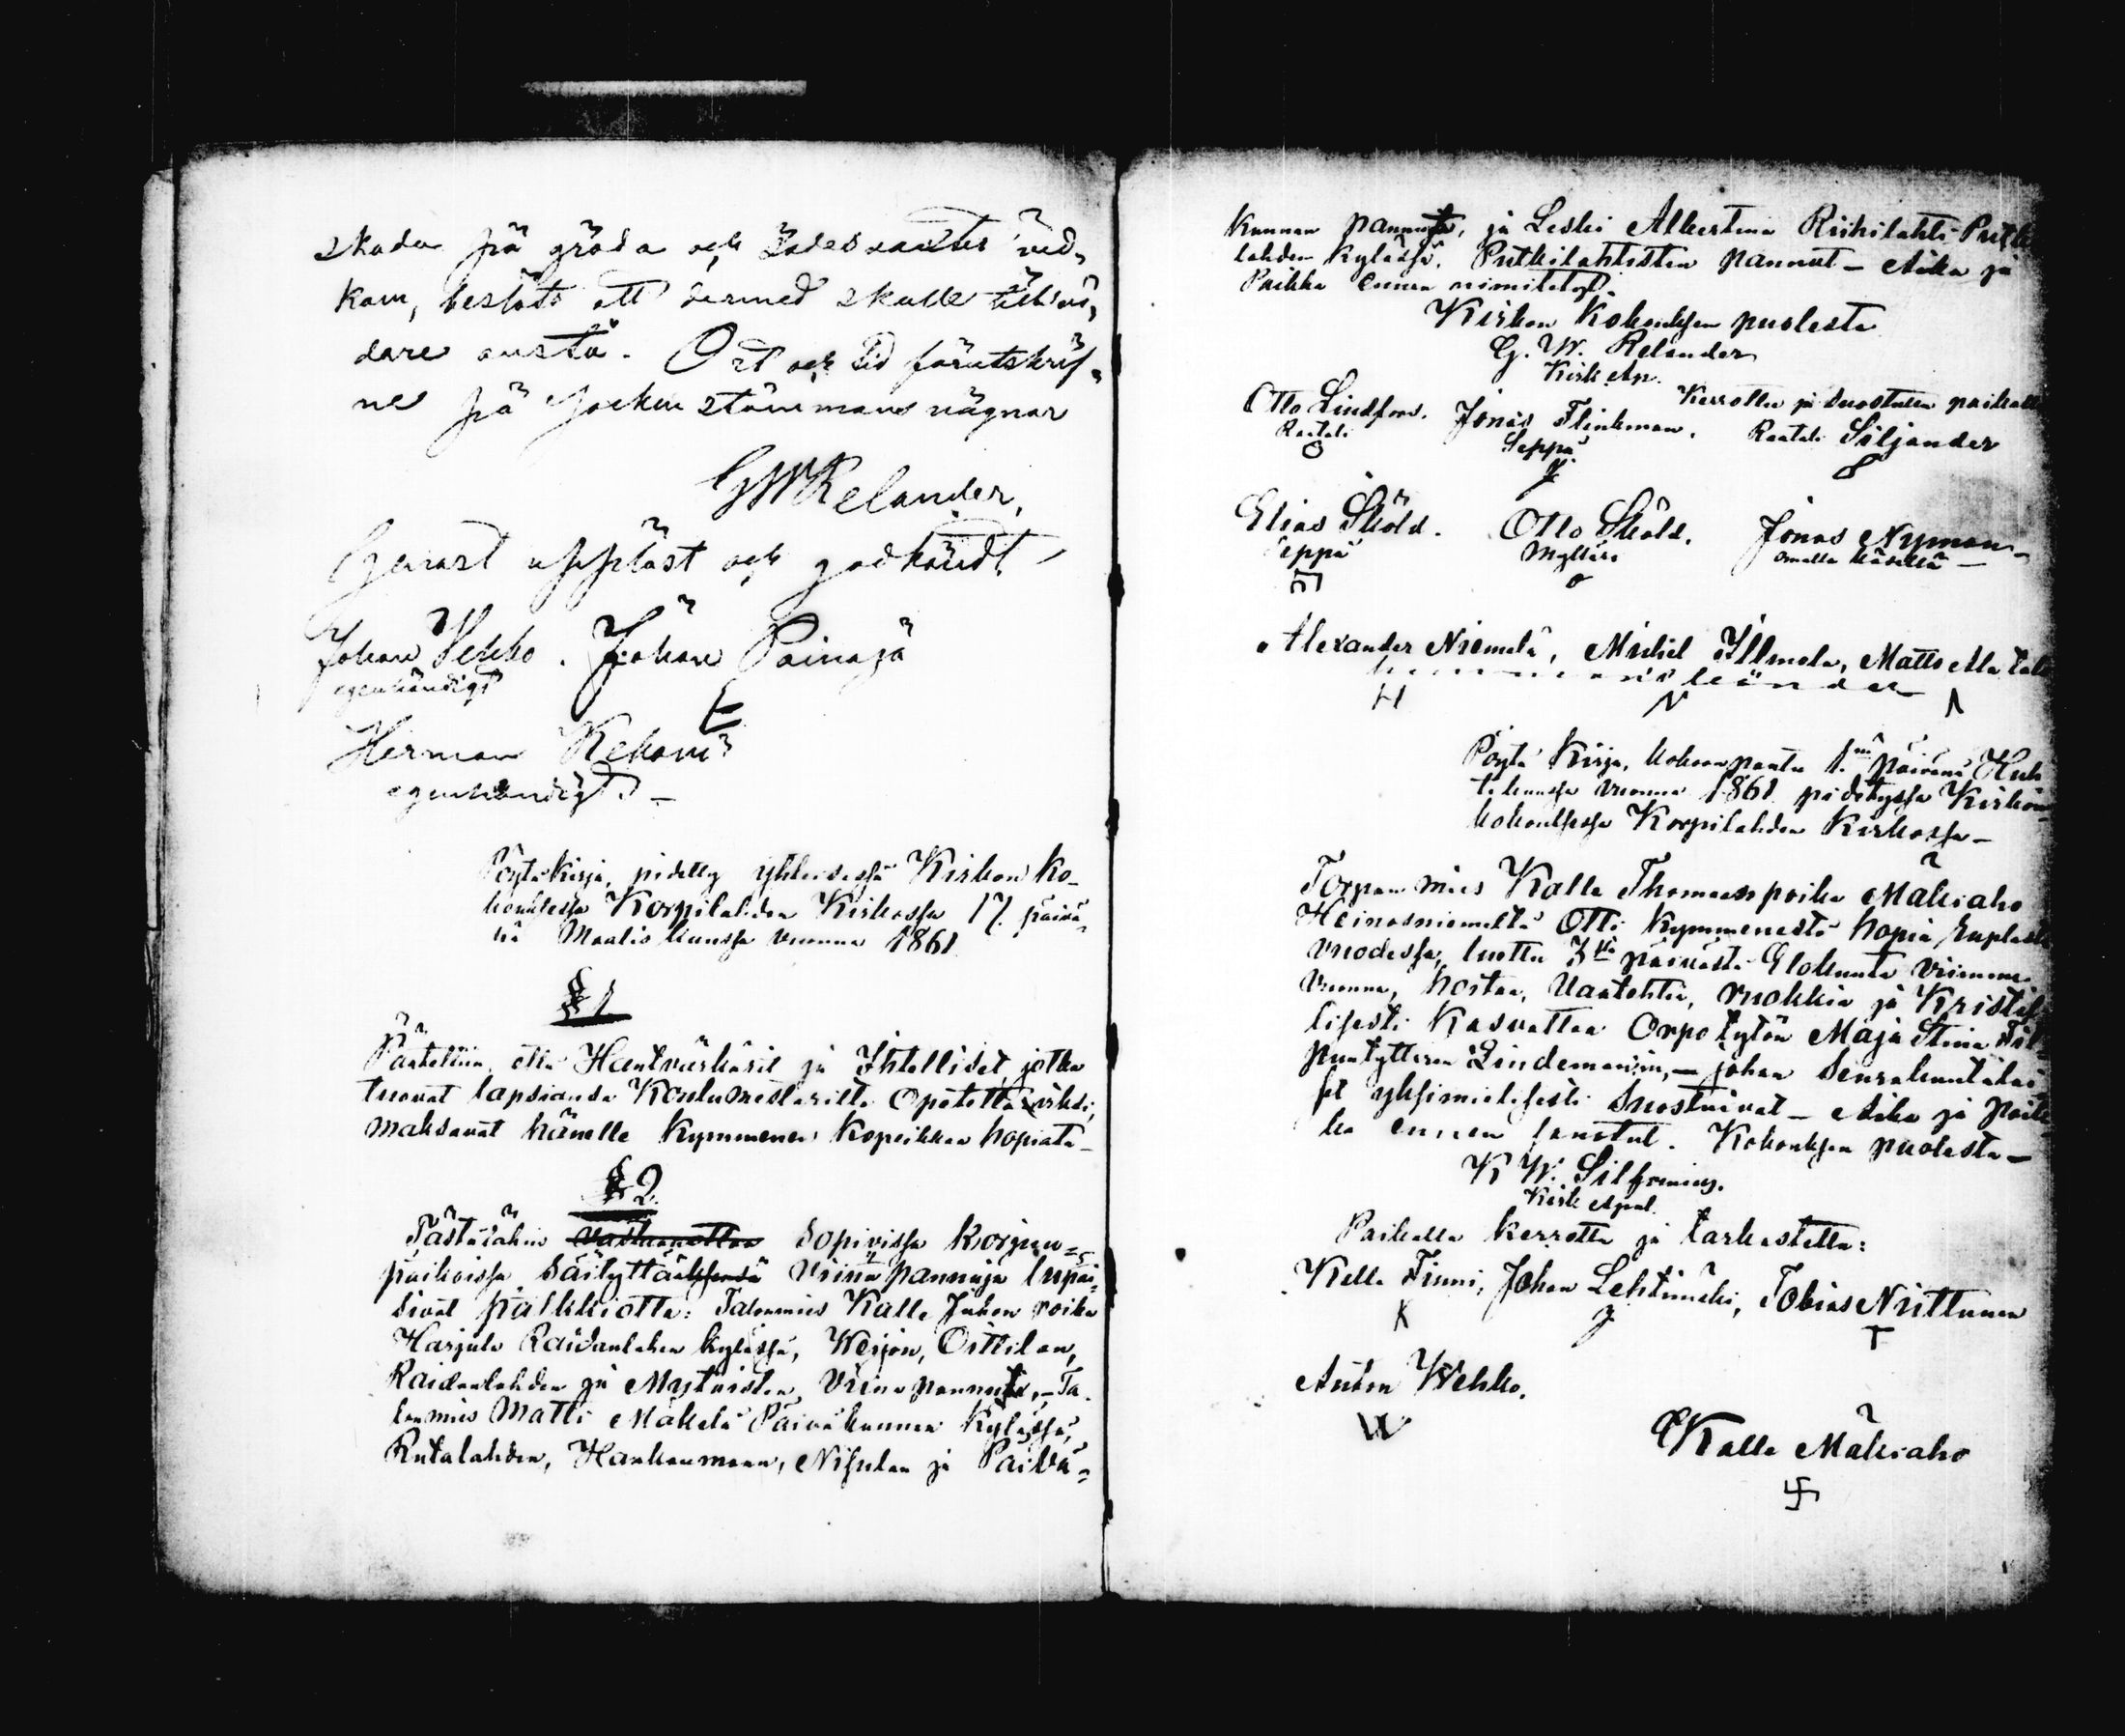 skada på gröda och ved-
kom, beslöts att dermed skulle
dare anstå. Ort och tid förutskrif-
ne på Sockenstämmans vägnar
GWRelander.
Genast uppläst och godkändt
Johan Vehko. Johan Painaja
egenhändigt
Herman Rekoni
egenhändigt
Pöytäkirja, pidetty yhteisessä Kirkon ko-
kouksessa Korpilahden Kirkossa 17. päivä-
nä Maalis kuussa vuonna 1861
§ 1
Päätettiin, että Hantvärkärit ja Ihtelliset, jotka
tuovat lapsiansa Koulumestarilta opetetta viksi,
maksavat hänelle kymmenen kopeikkaa hopiata_
§ 2.
Tästälähin vastaanottaa sopivissa korjuu=
paikoissa säilyttääksensä Viina pannuja lupai-
sivat palkkiotta: Talonmies Kalle Juhon poika
Harjula Raidanlahen kylässä, Weijon, Oittilan,
Raidanlahden ja Mytäisten Viina pannuja,_ Ta-
lonmies Matti Mäkelä Päiväkunnan Kylässä,
Rutalahden, Hankamaan, Nisulan ja Päivä=
kunnan pannuja, ja Leski Albertina Riihilahti Putki
lahden kylässä, Putkilahtisten pannut _ Aika ja
Paikka ennen nimitetyt.
Kirkon Kokouksen puolesta
G. W. Relander
Kirk. Ap.
Kerrottu ja suostuttu paikalla
Otto Lindfors. Jonas Flinkman. Raatali Siljander
Raatali Seppä
Elias Sköld. Otto Sköld. Jonas Nyman_
Seppä Mylläri omalla käsellä _
Alexander Niemelä, Mickel Illmola, Matts Ala talo
H N Λ
Pöytä Kirja, kokoonpantu 1.nä päivänä Huh
tikuussa vuonna 1861 pidetyssä Kirkon
kokouksessa Korpilahden Kirkossa_
Torpan mies Kalle Thomaanpoika Mäkiaho
Heinosniemeltä otti kymmenestä hopia ruplasta
vuodessa, luettu 3stä päivästä Elokuuta viimme
vuonna, hoitaa, Vaatehtia, ruokkia ja Kristil
lisesti kasvattaa Orpo tytön Maja Stina Fil
puntyttären Lindemanin,_ johon Seurakuntalai
set yksimielisesti suostuivat_ Aika ja paik
ka ennen sanotut. Kokouksen puolesta_
K W. Silfvenius.
Kirk Apul.
Paikalla kerrottu ja tarkastettu:
Kalle Finni, Johan Lehtimäki, Tobias Niittunen
K J T
Anton Wehko.
W
Kalle Mäkiaho
卐